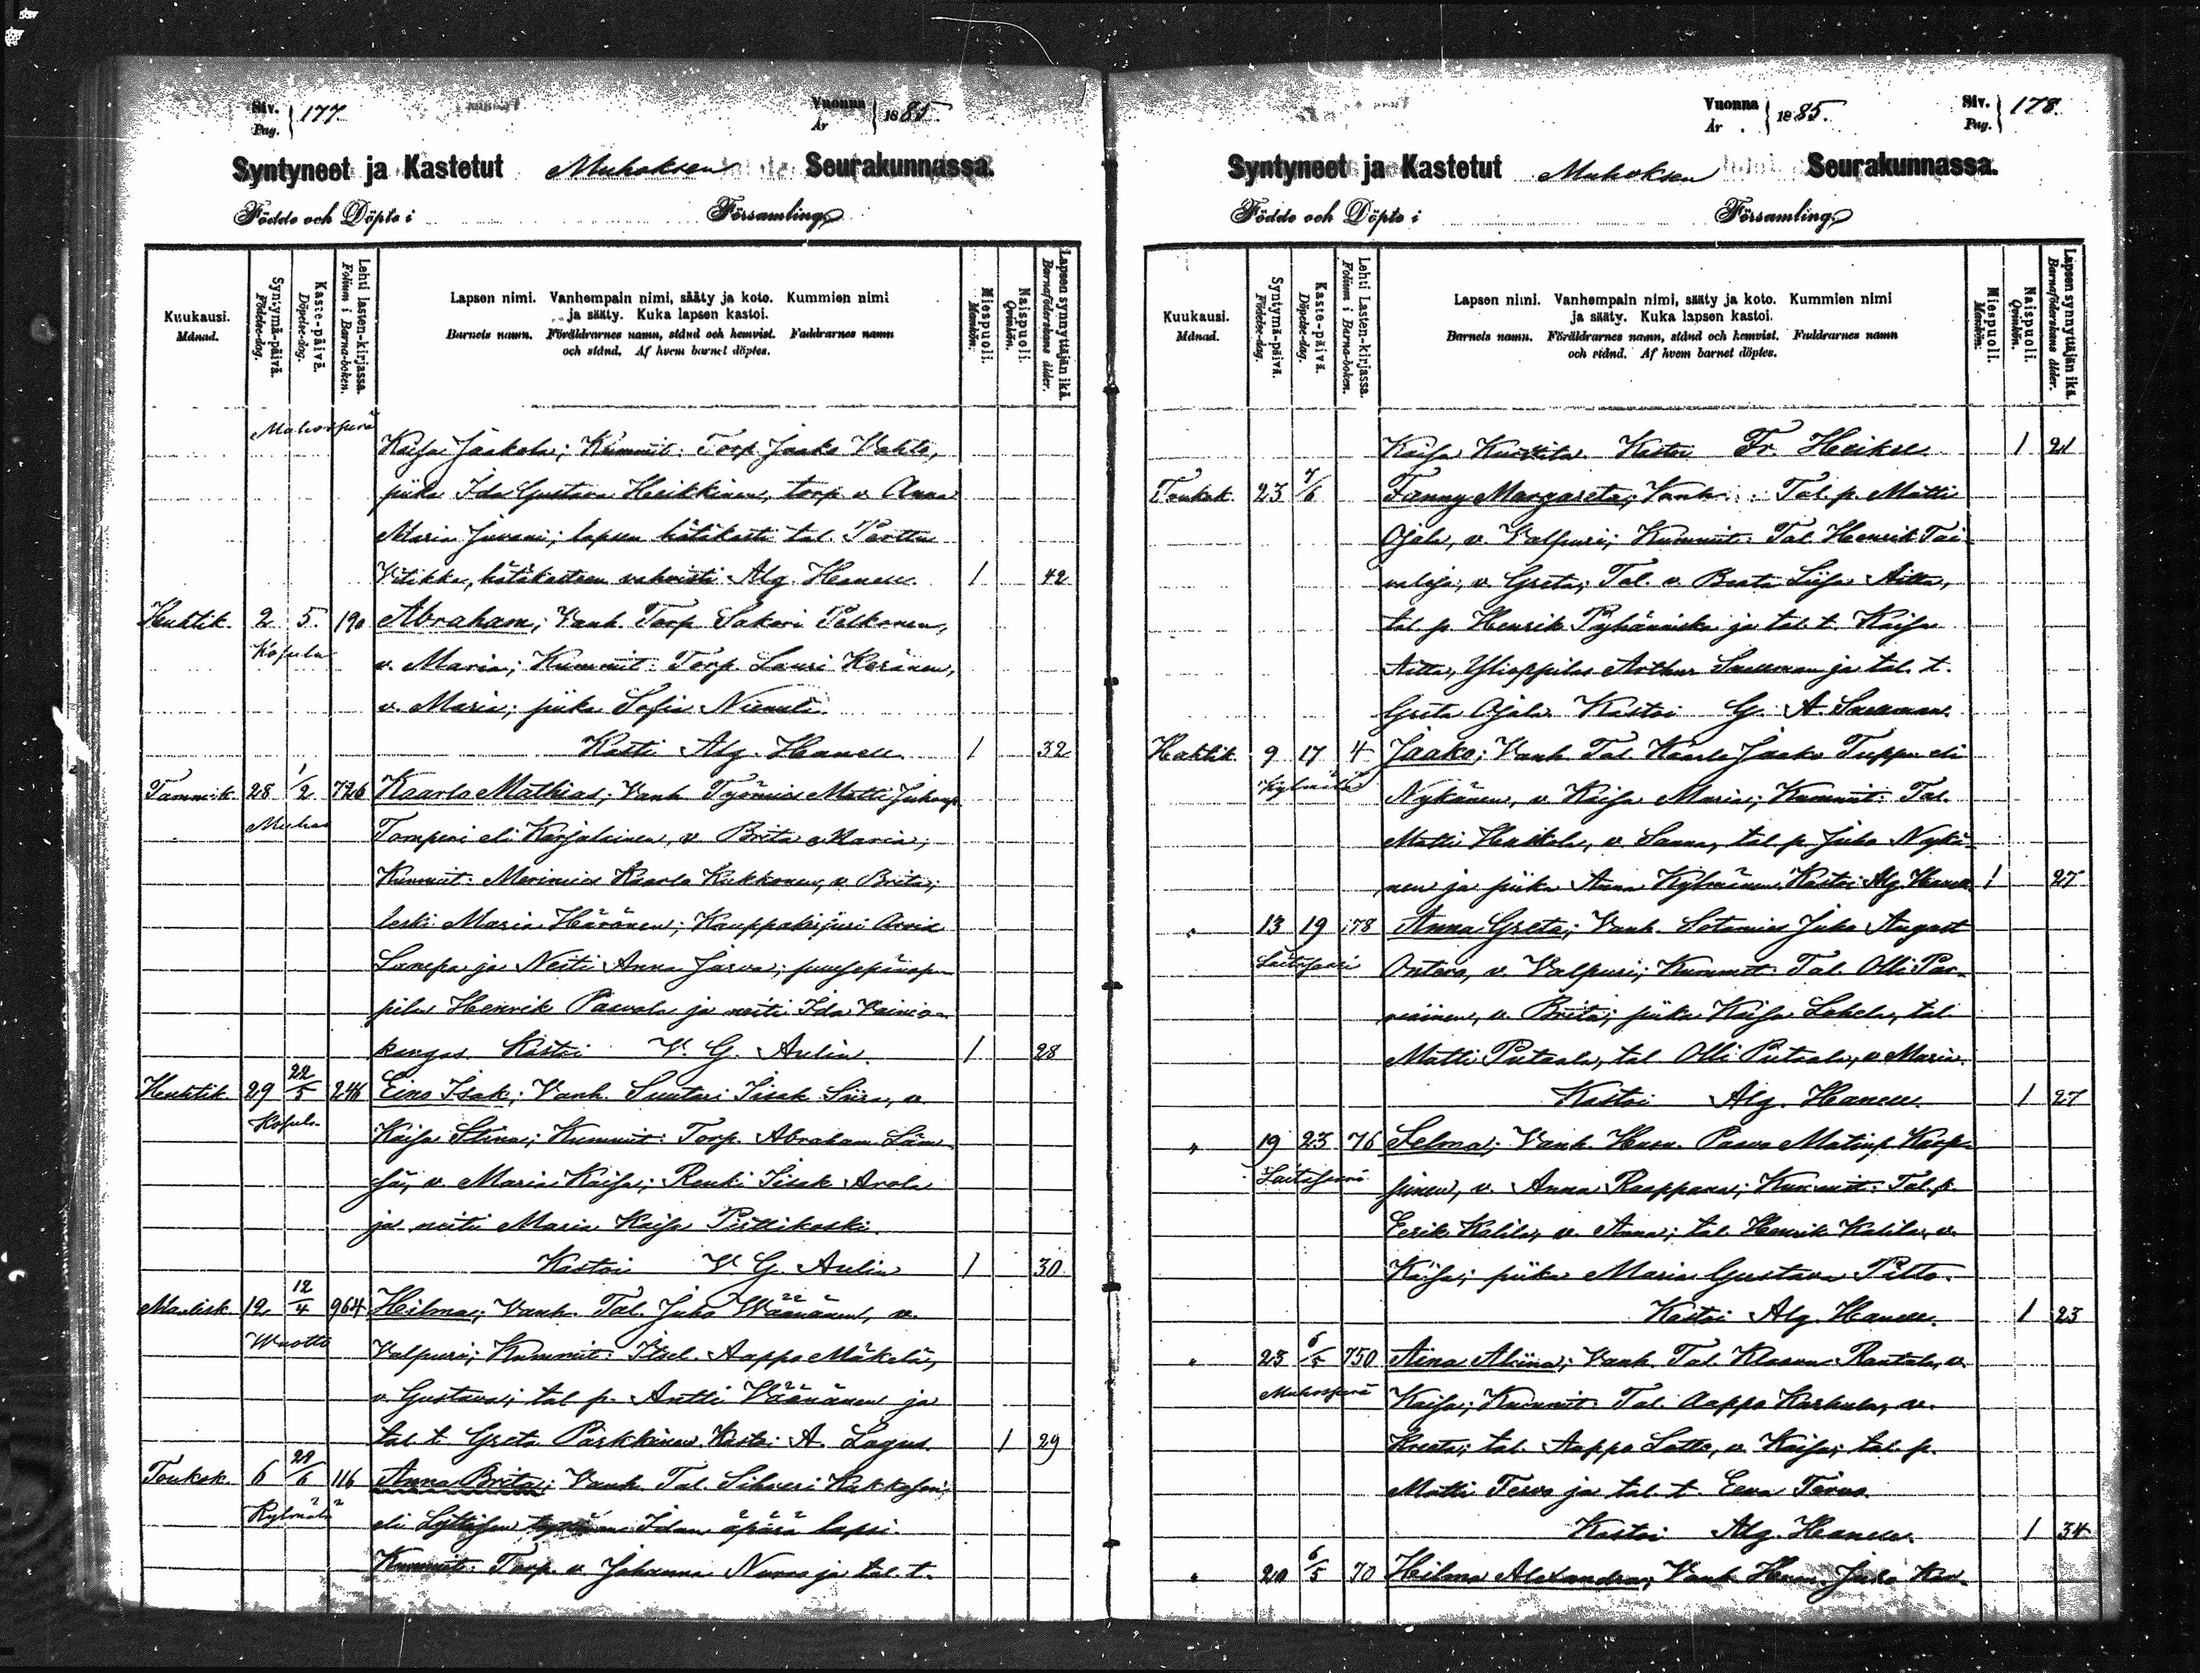 Siv. Pag. 177.
Vuonna År 1885.
Syntyneet ja Kastetut Muhoksen Seurakunnassa.
Födde och Döpte i Församling
Kuukausi. Månad.
Syntymä-päivä. Födelse-dag.
Kaste-päivä. Döpelse-dag.
Lehti lasten-kirjassa. Folium i Barna-boken.
Lapsen nimi. Vanhempain nimi, sääty ja koto. Kummien nimi
ja sääty. Kuka lapsen kastoi.
Barnets namn. Föräldrarnes namn, stånd och hemvist. Faddrarnes namn
och stånd. Af hvem barnet döptes.
Miespuoli. Mankön.
Naispuoli. Qvinkön.
Lapsen synnyttäjän ikä. Barnaföderskans ålder.
Muhosperä
Kaisa Jaakola; Kummit: Torp. Jaako Vahto,
piika Ida Gustava Heikkinen, torp. v. Anna
Maria Juvani; lapsen hätäkasti tal. Perttu
Vitikka, hätäkasteen vahvisti Alg. Hanell. 1 42
Huhtik. 2 5. 190 Abraham; Vanh. Torp. Sakari Pelkonen,
Kosula v. Maria; Kummit: Torp. Lauri Keränen,
v. Maria; piika Sofia Niemelä.
Kasti Alg. Hanell. 1 32
Tammik. 28 1/2 726 Kaarlo Mathias; Vanh. Työmies Matti Juhanp.
Muhos Tomperi eli Karjalainen, v. Brita Maria;
Kummit: Merimies Kaarlo Kukkonen, v. Brita;
leski Maria Härönen; Kauppakirjuri Arvid
ja Neiti Anna Jarva; puusepänop-
pilas Henrik Paavola ja neiti Ida Vainio-
kangas. Kastoi V. G. Aulin. 1 28
Huhtik. 29 22/5 246 Eino Isak; Vanh. Suutari Iisak Siira, v.
Kosula Kaisa Stina; Kummit: Torp. Abraham Läm-
sä, v. Maria Kaisa; Renki Iisak Arola
ja neiti Maria Kaisa Pirttikoski.
Kastoi V. G. Aulin 1 30
Maalisk. 12 12/4 964 Hilma; Vanh. Tal. Juho Väänänen, v.
Wuotto Valpuri; Kummit: Itsel. Aappo Mäkelä,
v. Gustava; tal. p. Antti Väänänen ja
tal. t. Greta Parkkinen. Kastoi A. Lagus. 1 29
Toukok. 6 28/6 116 Anna Brita; Vanh. Tal. Sihveri
Kylmälä eli Lyttisen Idan äpärä lapsi.
Kummit: Torp. v. Johanna ja tal. t.
Vuonna År 1885.
Siv. Pag. 178.
Syntyneet ja Kastetut Muhoksen Seurakunnassa.
Födde och Döpte i Församling
Kuukausi. Månad.
Syntymä-päivä. Födelse-dag.
Kaste-päivä. Döpelse-dag.
Lehti Lasten-kirjassa. Folium i Barna-boken.
Lapsen nimi. Vanhempain nimi, sääty ja koto. Kummien nimi
ja sääty. Kuka lapsen kastoi.
Barnets namn. Föräldrarnes namn, stånd och hemvist. Faddrarnes namn
och stånd. Af hvem barnet döptes.
Miespuoli. Mankön.
Naispuoli. Qvinkön.
Lapsen synnyttäjän ikä. Barnaföderskans ålder.
Kaisa Kastoi Fr. Heikel 1 21
Toukok. 23 7/6 Fanny Margareta; Vanh.: Tal. p. Matti
Ojala, v. Valpuri; Kummit: Tal. Henrik Tai-
v. Greta; Tal. v. Beata Liisa Aitta,
tal. p. Henrik Pyhänniska ja tal. t. Kaisa
Aitta, Ylioppilas Arthur Snellman ja tal. t.
Greta Ojala Kastoi G. A. Snellman.
Huhtik. 9 17 4 Jaako; Vanh. Tal. Kaarlo Jaako Tuppu eli
Kylmälä Nykänen, v. Kaisa Maria; Kummit: Tal.
Matti v. Sanna, tal. p. Juho Nykä-
nen ja piika Anna Kylmänen Kastoi Alg. Hanell 1 27
" 13 19 178 Anna Greta; Vanh. Sotamies Juho August
Laitasaari Ontero, v. Valpuri; Kummit: Tal. Olli Par-
viainen, v. Brita; piika Kaisa Lohela, tal.
Matti Pietaala, tal. Olli Pietaala, v. Maria.
Kastoi Alg. Hanell. 1 27
" 19 23 76 Selma; Vanh. Huon. Paavo Matinp. Karp-
Laitasaari pinen, v. Anna Raappana; Kummit: Tal. p.
Eerik Kalila, v. Anna; tal. Henrik Kalila, v.
Kaisa; piika Maria Gustava Pitto.
Kastoi Alg. Hanell. 1 23
" 23 6/5 750 Aina Aliina; Vanh. Tal. Klaavu Rantala, v.
Muhosperä Kaisa; Kummit Tal. Aappo Karhula, v.
Kreeta; tal. Aappo Latto, v. Kaisa; tal. p.
Matti Tervo ja tal. t. Eeva Tervo.
Kastoi Alg. Hanell. 1 34
" 20 6/5 70 Hilma Alexandra; Vanh. Huon. Juho